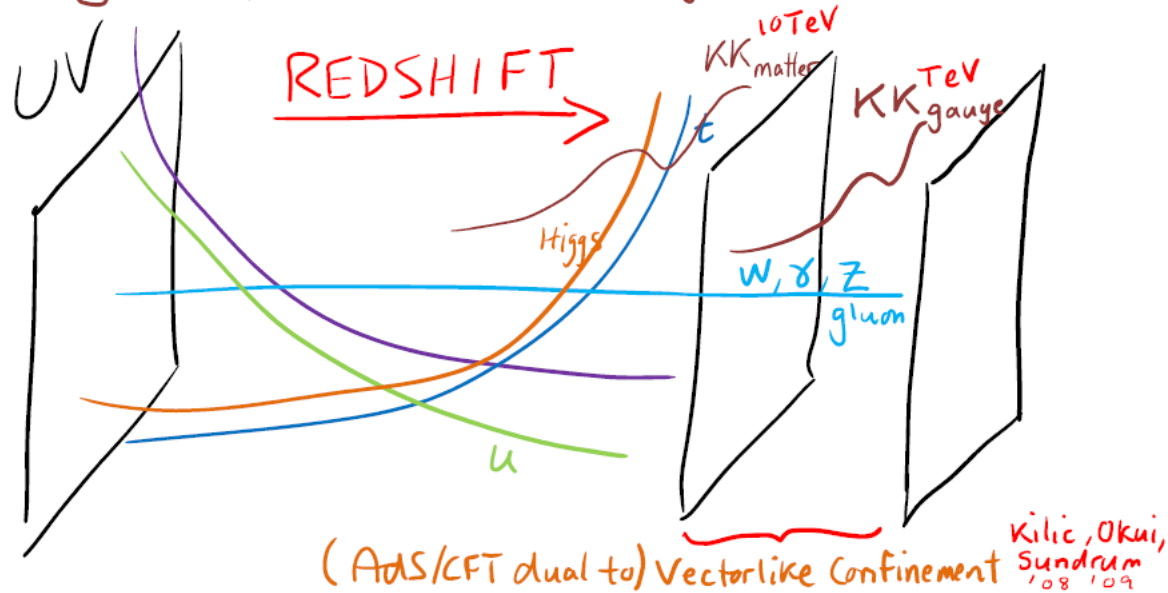 UV
REDSHIFT
10TeV
KK matter
TeV
KK gauge
t
Higgs
W, γ, Z
gluon
u
(AdS/CFT dual to) Vectorlike Confinement
Kilic, Okui,
Sundrum
'08 '09